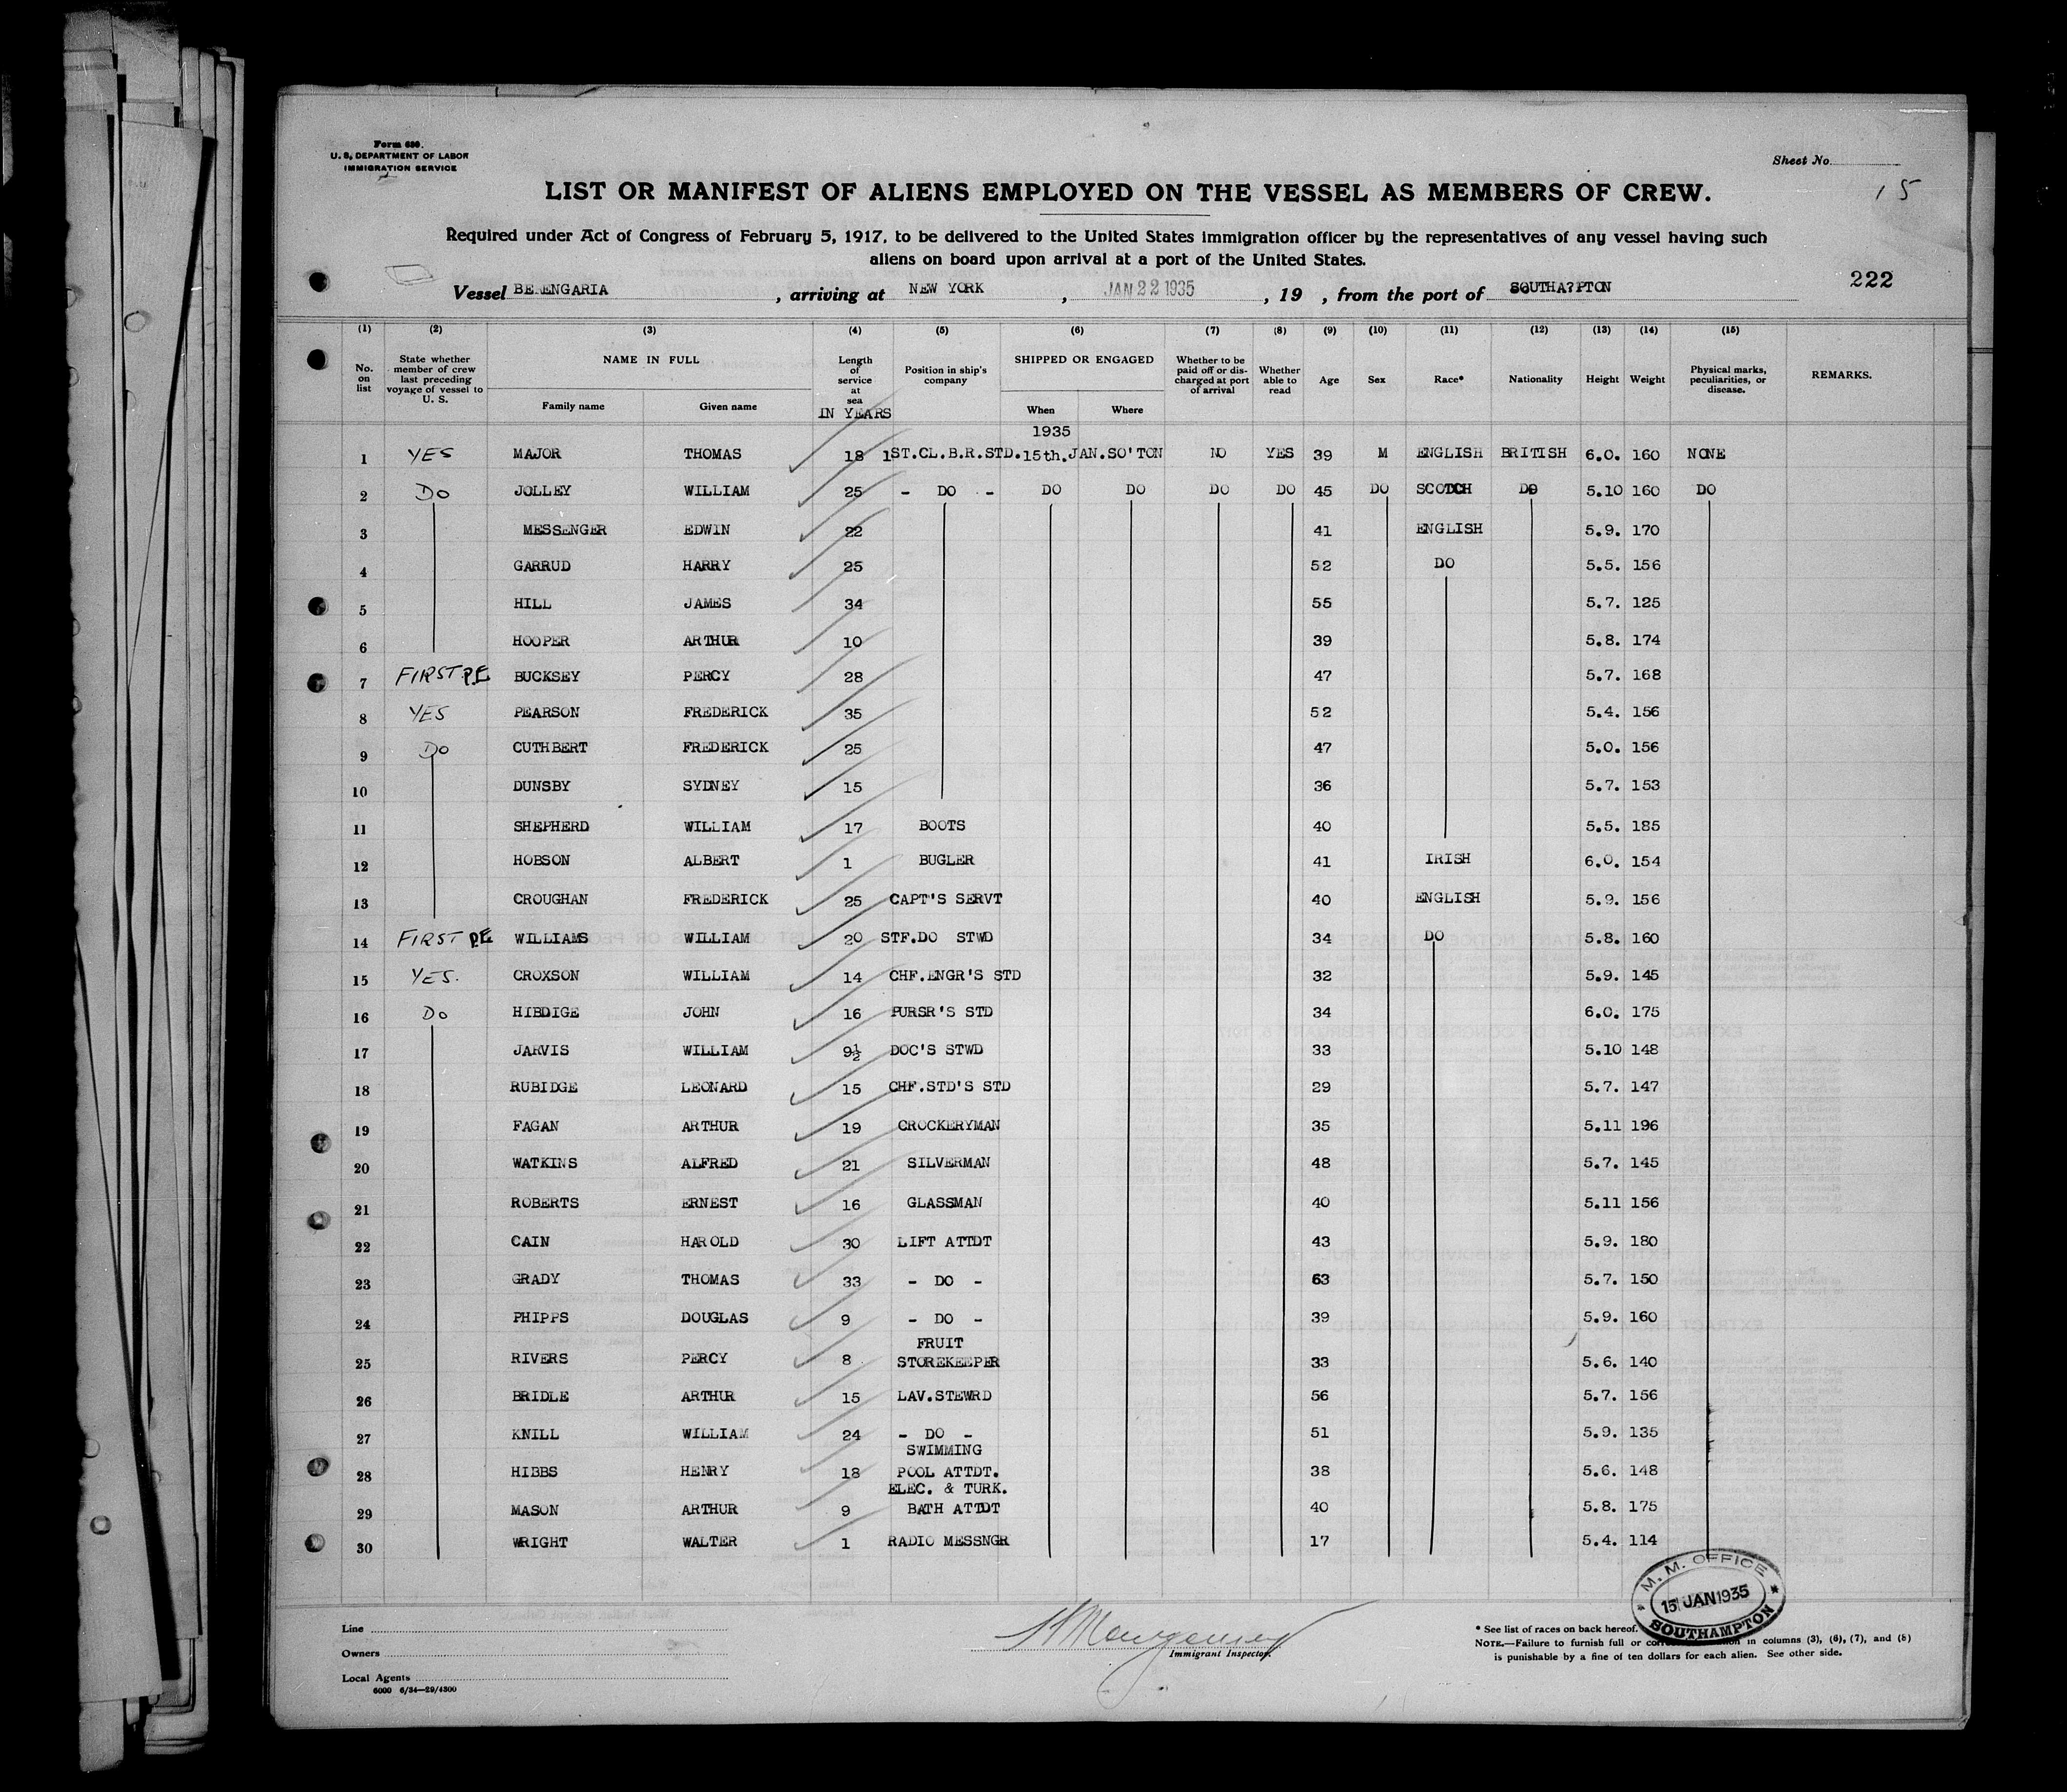 Form 680.
U. S. DEPARTMENT OF LABOR
IMMIGRATION SERVICE
Sheet No.
15
LIST OR MANIFEST OF ALIENS EMPLOYED ON THE VESSEL AS MEMBERS OF CREW.
Required under Act of Congress of February 5, 1917, to be delivered to the United States immigration officer by the representatives of any vessel having such
aliens on board upon arrival at a port of the United States.
222
Vessel BERENGARIA , arriving at NEW YORK , JAN 22 1935 , 19 , from the port of SOUTHA?PTON
(1) (2) (3) (4) (5) (6) (7) (8) (9) (10) (11) (12) (13) (14) (15)
No. on list State whether member of crew last preceding voyage of vessel to U. S. NAME IN FULL Family name Given name Length of service at sea IN YEARS Position in ship's company SHIPPED OR ENGAGED When Where Whether to be paid off or discharged at port of arrival Whether able to read Age Sex Race* Nationality Height Weight Physical marks, peculiarities, or disease. REMARKS.
1935
1 YES MAJOR THOMAS 18 1ST.CL.B.R.STD. 15th.JAN. SO'TON NO YES 39 M ENGLISH BRITISH 6.0. 160 NONE
2 DO JOLLEY WILLIAM 25 - DO - DO DO DO DO 45 DO SCOTCH DO 5.10 160 DO
3 MESSENGER EDWIN 22 41 ENGLISH 5.9. 170
4 GARRUD HARRY 25 52 DO 5.5. 156
5 HILL JAMES 34 55 5.7. 125
6 HOOPER ARTHUR 10 39 5.8. 174
7 FIRST P.E BUCKSEY PERCY 28 47 5.7. 168
8 YES PEARSON FREDERICK 35 52 5.4. 156
9 Do CUTHBERT FREDERICK 25 47 5.0. 156
10 DUNSBY SYDNEY 15 36 5.7. 153
11 SHEPHERD WILLIAM 17 BOOTS 40 5.5. 185
12 HOBSON ALBERT 1 BUGLER 41 IRISH 6.0. 154
13 CROUGHAN FREDERICK 25 CAPT'S SERVT 40 ENGLISH 5.9. 156
14 FIRST P.E WILLIAMS WILLIAM 20 STF.DO STWD 34 DO 5.8. 160
15 YES. CROXSON WILLIAM 14 CHF.ENGR'S STD 32 5.9. 145
16 Do HIBDIGE JOHN 16 PURSR'S STD 34 6.0. 175
17 JARVIS WILLIAM 9½ DOC'S STWD 33 5.10 148
18 RUBIDGE LEONARD 15 CHF.STD'S STD 29 5.7. 147
19 FAGAN ARTHUR 19 CROCKERYMAN 35 5.11 196
20 WATKINS ALFRED 21 SILVERMAN 48 5.7. 145
21 ROBERTS ERNEST 16 GLASSMAN 40 5.11 156
22 CAIN HAROLD 30 LIFT ATTDT 43 5.9. 180
23 GRADY THOMAS 33 - DO - 63 5.7. 150
24 PHIPPS DOUGLAS 9 - DO - 39 5.9. 160
25 RIVERS PERCY 8 FRUIT STOREKEEPER 33 5.6. 140
26 BRIDLE ARTHUR 15 LAV.STEWRD 56 5.7. 156
27 KNILL WILLIAM 24 - DO - 51 5.9. 135
28 HIBBS HENRY 18 SWIMMING POOL ATTDT. 38 5.6. 148
29 MASON ARTHUR 9 ELEC. & TURK. BATH ATTDT 40 5.8. 175
30 WRIGHT WALTER 1 RADIO MESSNGR 17 5.4. 114
M. M. OFFICE
15 JAN 1935
SOUTHAMPTON
Line
Owners
Local Agents
6000 6/34—29/4300
Immigrant Inspector.
* See list of races on back hereof.
NOTE.—Failure to furnish full or in columns (3), (6), (7), and (8)
is punishable by a fine of ten dollars for each alien. See other side.